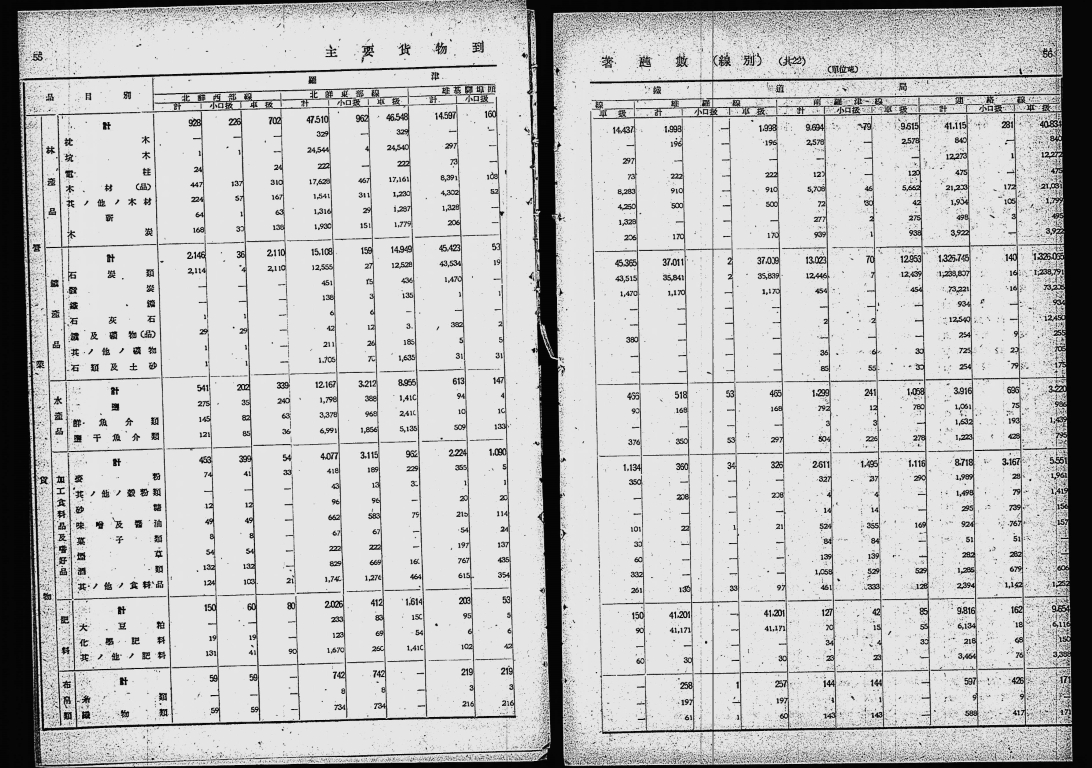 55
主要貨物到
羅 津
品目別 北鮮西部線 北鮮東部線 雄基驛埠頭
計 小口扱 車扱 計 小口扱 車扱 計 小口扱
營業貨物
林産品
計 928 226 702 47.510 962 46.548 14.597 160
枕木 — — — 329 — 329 — —
坑木 1 1 — 24,544 4 24,540 297 —
電柱 24 — 24 222 — 222 73 —
木材(品) 447 137 310 17,628 467 17,161 8,391 108
其ノ他ノ木材 224 57 167 1,541 311 1,230 4,302 52
薪 64 1 63 1,316 29 1,287 1,328 —
木炭 168 30 138 1,930 151 1,779 206 —
鑛産品
計 2.146 36 2.110 15.108 159 14.949 45.423 53
石炭類 2,114 4 2,110 12,555 27 12,528 43,534 19
骸炭 — — — 451 15 436 1,470 —
鐵鑛 — — — 138 3 135 1 1
石灰石 1 1 — 6 6 — — —
鑛及礦物(品) 29 29 — 42 12 382 2
其ノ他ノ礦物 1 1 — 211 26 185 5 5
石類及土砂 1 1 — 1,705 70 1,635 31 31
水産品
計 541 202 339 12.167 3.212 8.955 613 147
鹽 275 35 240 1,798 388 1,410 94 4
鮮魚介類 145 82 63 3,378 968 2,410 10 10
鹽干魚介類 121 85 36 6,991 1,856 5,135 509 133
加工食料品及嗜好品
計 453 399 54 4.077 3.115 962 2.224 1.090
麥粉 74 41 33 418 189 229 355 5
其ノ他ノ穀粉類 — — — 43 13 1 1
砂糖 12 12 — 96 96 — 20 20
味噌及醤油 49 49 — 662 583 79 215 114
菓子類 8 8 — 67 67 — 54 24
煙草 54 54 — 222 222 — 197 137
酒類 132 132 — 829 669 160 767 435
其ノ他ノ食料品 124 103 21 1,740 1,276 464 615 354
肥料
計 150 60 90 2.026 412 1.614 203 53
大豆粕 — — — 233 83 150 95 5
化學肥料 19 19 — 123 69 54 6 6
其ノ他ノ肥料 131 41 90 1,670 260 1,410 102 42
布帛類
計 59 59 — 742 742 — 219 219
糸類 — — — 8 8 — 3 3
織物類 59 59 — 734 734 — 216 216
56
著噸數(線別)(共22)
(單位噸)
鐵道局
線 雄羅線 南羅津線 連絡線
車扱 計 小口扱 車扱 計 小口扱 車扱 計 小口扱 車扱
14.437 1.998 — 1.998 9.694 79 9.615 41.115 281 40.834
— 196 — 196 2,578 — 2,578 840 — 840
297 — — — — — — 12,273 1 12,272
73 222 — 222 120 — 120 475 — 475
8,283 910 — 910 5,708 46 5,662 21,203 172 21,031
4,250 500 — 500 72 30 42 1,904 105 1,799
1,328 — — — 277 2 275 498 3 495
206 170 — 170 939 1 938 3,922 — 3,922
45.365 37.011 2 37.009 13.023 70 12.953 1.326.745 140 1.326.055
43,515 35,841 2 35,839 12,446 7 12,439 1,238,807 16 1,238,791
1,470 1,170 — 1,170 454 — 454 73,221 16 73,205
— — — — — — — 934 — 934
— — — — 2 2 — 12,540 —
380 — — — — — — 254 9
— — — — 36 6 30 725 20 705
— — — — 85 55 30 254 79 175
466 518 53 465 1.299 241 1.058 3.916 696 3.220
90 168 — 168 792 12 780 1,061 75 986
— — — — 3 3 — 1,632 193 1,439
376 350 53 297 504 226 278 1,223 428 795
1.134 360 34 326 2.611 1.495 1.116 8.718 3.167 5.551
350 — — — 327 37 290 1,989 28 1,961
— 208 — 208 4 4 — 1,498 79 1,419
— — — — 14 14 — 295 739 156
101 22 1 21 524 355 169 924 767 157
30 — — — 84 84 — 51 51 —
60 — — — 139 139 — 282 282 —
332 — — — 1,058 529 529 1,285 679 606
261 130 33 97 461 333 128 2,394 1,142 1,252
150 41.201 — 41.201 127 42 85 9.816 162 9.654
90 41,171 — 41,171 70 15 55 6,134 18 6,116
— — — — 34 4 30 218 68 150
60 30 — 30 23 23 — 3,464 76 3,388
— 258 1 257 144 144 — 597 426 171
— 197 — 197 1 1 — 9 9 —
— 61 1 60 143 143 — 588 417 171